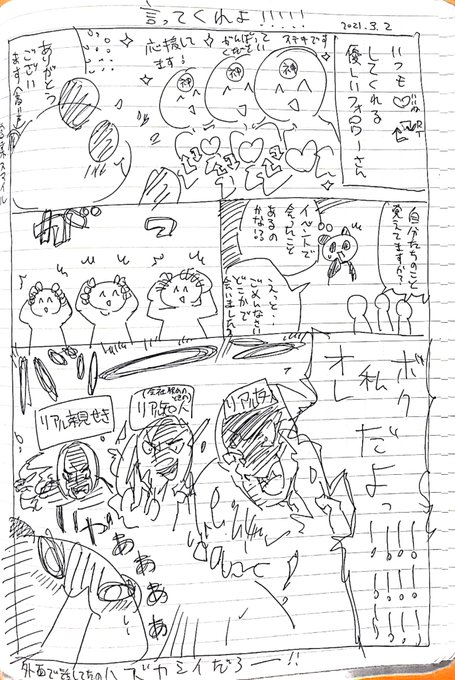 言ってくれよ!!!!!
2021.3.2
いつも♡や
RT
してくれる
優しいフォロワーさん
ステキです
がんばって
ください
応援して
ます!
神
神
神
ありがとう
ござい
ます
自分たちのこと
覚えてますか?
イベントで
会ったこと
あるの
かな!?
えっと…
ごめんなさい
どこかで
会いました?
ガバ
ボク
私
オレ
だよっ
!!!!!!!!!!!!
リアル友人
リアル知人
リアル親せき
ぎゃああああ
外面で話してたのハズカシイだろー!!